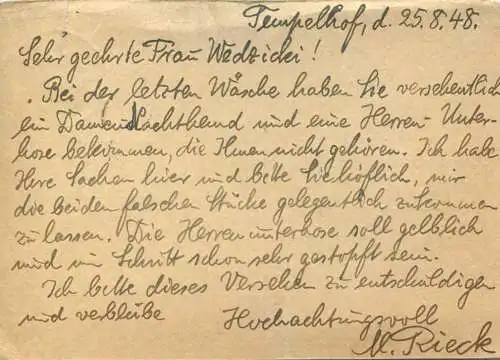 Tempelhof, d. 25.8.48.
Sehr geehrte Frau Wedzicki!
Bei der letzten Wäsche haben Sie versehentlich
ein Damen Nachthemd und eine Herren-Unter-
hose bekommen, die Ihnen nicht gehören. Ich habe
Ihre Sachen hier und bitte Sie höflich, mir
die beiden falschen Stücke gelegentlich zukommen
zu lassen. Die Herrenunterhose soll gelblich
und im Schritt schon sehr gestopft sein.
Ich bitte dieses Versehen zu entschuldigen
und verbleibe Hochachtungsvoll
M. Rieck